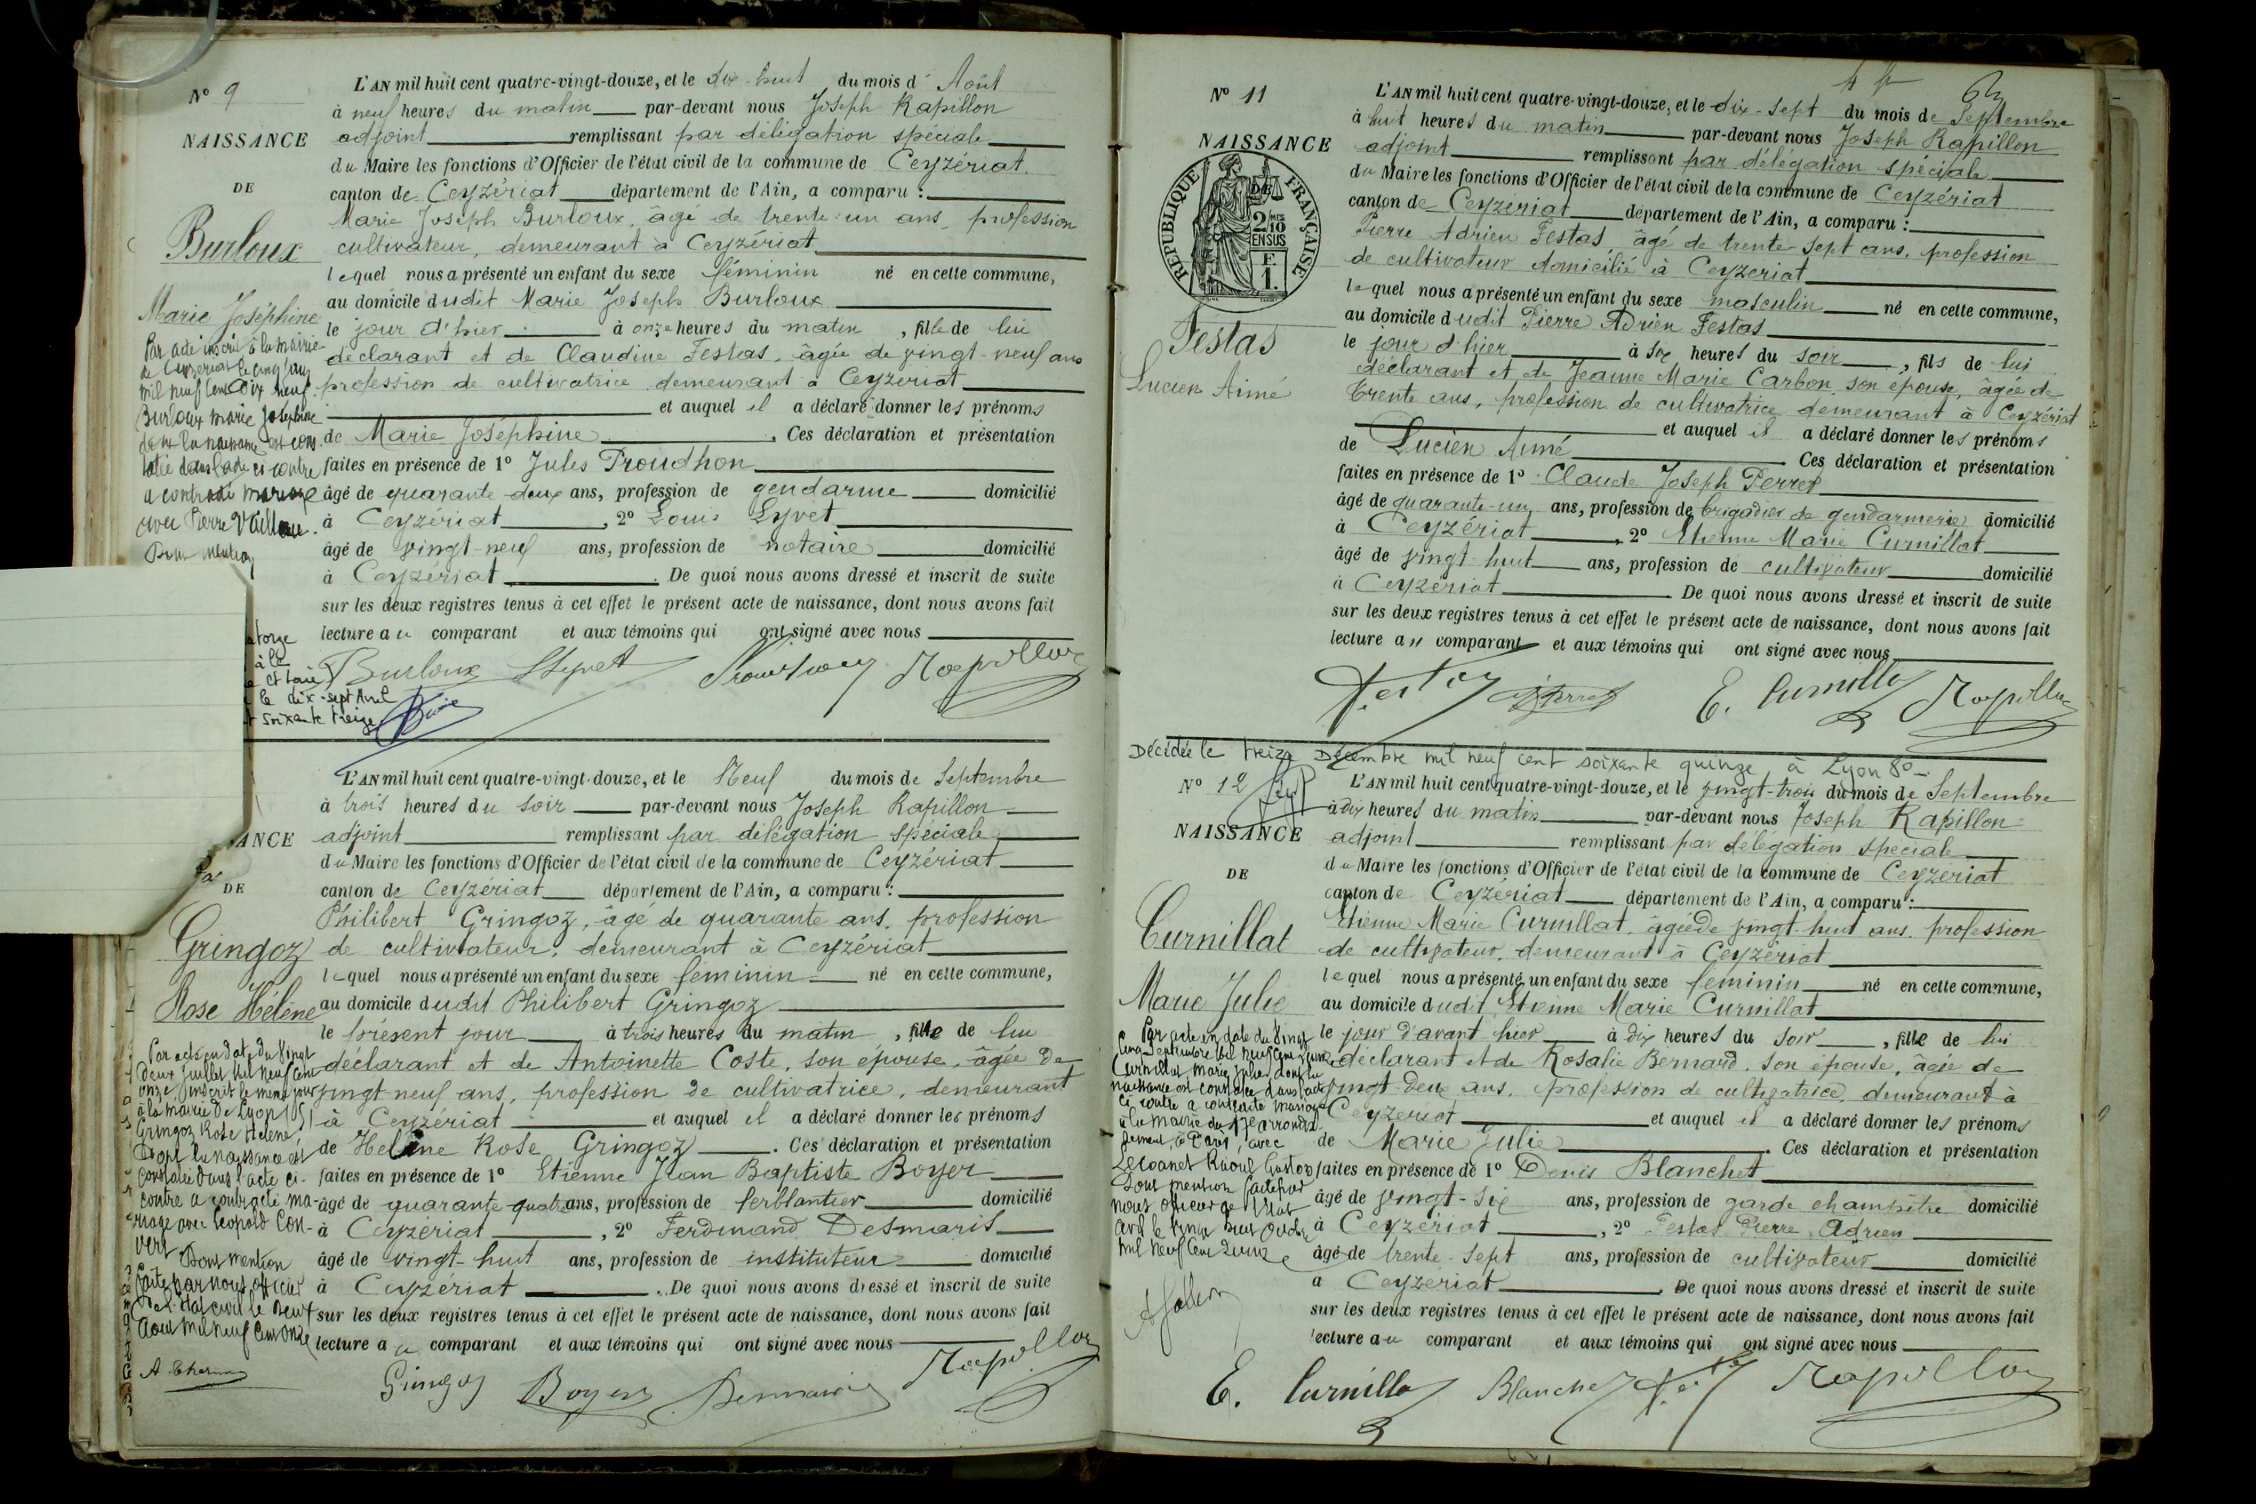 N° 9
NAISSANCE
DE
Burloux
Marie Joséphine
L'AN mil huit cent quatre-vingt-douze, et le dix-huit du mois d' Août
à neuf heures du matin par-devant nous Joseph Rapillon
adjoint remplissant par délégation spéciale
du Maire les fonctions d'Officier de l'état civil de la commune de Ceyzériat
canton de Ceyzériat département de l'Ain, a comparu :
Marie Joseph Burloux, âgé de trente-un ans, profession
cultivateur, demeurant à Ceyzériat
lequel nous a présenté un enfant du sexe féminin né en cette commune,
au domicile dudit Marie Joseph Burloux
le jour d'hier à onze heures du matin, fille de lui
déclarant et de Claudine Festas, âgée de vingt-neuf ans
profession de cultivatrice demeurant à Ceyzériat
et auquel il a déclaré donner les prénoms
de Marie Joséphine. Ces déclaration et présentation
faites en présence de 1° Jules Proudhon
âgé de quarante-deux ans, profession de gendarme domicilié
à Ceyzériat, 2° Louis Lyvet
âgé de vingt-neuf ans, profession de notaire domicilié
à Ceyzériat. De quoi nous avons dressé et inscrit de suite
sur les deux registres tenus à cet effet le présent acte de naissance, dont nous avons fait
lecture au comparant et aux témoins qui ont signé avec nous
Burloux LLyvet Proudhon Rapillon
Par acte inscrit à la mairie
de Ceyzériat le cinq
mil neuf cent dix neuf
Burloux Marie Joséphine
dont la naissance est cons
tatée dans l'acte ci contre
a contracté mariage
avec Pierre
Dont mention
torze
à la
le dix-sept Avril
soixante treize
ANCE
DE
Gringoz
Rose Hélène
L'AN mil huit cent quatre-vingt-douze, et le Neuf du mois de Septembre
à trois heures du soir par-devant nous Joseph Rapillon
adjoint remplissant par délégation spéciale
du Maire les fonctions d'Officier de l'état civil de la commune de Ceyzériat
canton de Ceyzériat département de l'Ain, a comparu :
Philibert Gringoz, âgé de quarante ans, profession
de cultivateur, demeurant à Ceyzériat
lequel nous a présenté un enfant du sexe féminin né en cette commune,
au domicile dudit Philibert Gringoz
le présent jour à trois heures du matin, fille de lui
déclarant et de Antoinette Coste, son épouse, âgée de
vingt neuf ans, profession de cultivatrice, demeurant
à Ceyzériat et auquel il a déclaré donner les prénoms
de Helène Rose Gringoz. Ces déclaration et présentation
faites en présence de 1° Etienne Jean Baptiste Boyer
âgé de quarante-quatre ans, profession de ferblantier domicilié
à Ceyzériat, 2° Ferdinand Desmaris
âgé de vingt-huit ans, profession de instituteur domicilié
à Ceyzériat. De quoi nous avons dressé et inscrit de suite
sur les deux registres tenus à cet effet le présent acte de naissance, dont nous avons fait
lecture au comparant et aux témoins qui ont signé avec nous
Gringoz Boyer Desmaris Rapillon
Par acte en date du vingt
deux Juillet mil neuf cent
onze, inscrit le même jour
à la mairie de Lyon (5)
Gringoz Rose Hélène,
dont la naissance est
constatée dans l'acte ci-
contre a contracté ma-
riage avec Léopold Con-
vert
Dont mention
faite par nous, officier
de l'état civil le deux
Août mil neuf cent onze
N° 11
NAISSANCE
DE
RÉPUBLIQUE FRANÇAISE
2/10 EN SUS
F. 1.
Festas
Lucien Aimé
L'AN mil huit cent quatre-vingt-douze, et le dix-sept du mois de Septembre
à huit heures du matin par-devant nous Joseph Rapillon
adjoint remplissant par délégation spéciale
du Maire les fonctions d'Officier de l'état civil de la commune de Ceyzériat
canton de Ceyzériat département de l'Ain, a comparu :
Pierre Adrien Festas, âgé de trente sept ans, profession
de cultivateur domicilié à Ceyzériat
lequel nous a présenté un enfant du sexe masculin né en cette commune,
au domicile dudit Pierre Adrien Festas
le jour d'hier à six heures du soir, fils de lui
déclarant et de Jeanne Marie Carbon, son épouse, âgée de
trente ans, profession de cultivatrice demeurant à Ceyzériat
et auquel il a déclaré donner les prénoms
de Lucien Aimé Ces déclaration et présentation
faites en présence de 1° Claude Joseph Perret
âgé de quarante-un ans, profession de brigadier de gendarmerie domicilié
à Ceyzériat, 2° Etienne Marie Curnillat
âgé de vingt huit ans, profession de cultivateur domicilié
à Ceyzériat De quoi nous avons dressé et inscrit de suite
sur les deux registres tenus à cet effet le présent acte de naissance, dont nous avons fait
lecture au comparant et aux témoins qui ont signé avec nous
Festas Perret E. Curnillat Rapillon
Décédée le treize Décembre mil neuf cent soixante quinze à Lyon 8°
N° 12
NAISSANCE
DE
Curnillat
Marie Julie
L'AN mil huit cent quatre-vingt-douze, et le vingt-trois du mois de Septembre
à dix heures du matin par-devant nous Joseph Rapillon
adjoint remplissant par délégation spéciale
du Maire les fonctions d'Officier de l'état civil de la commune de Ceyzeriat
canton de Ceyzériat département de l'Ain, a comparu :
Etienne Marie Curnillat, âgé de vingt-huit ans, profession
de cultivateur, demeurant à Ceyzériat
lequel nous a présenté un enfant du sexe féminin né en cette commune,
au domicile dudit Etienne Marie Curnillat
le jour d'avant hier à dix heures du soir, fille de lui
déclarant et de Rosalie Bernard, son épouse, âgée de
vingt-deux ans, profession de cultivatrice, demeurant à
Ceyzeriat et auquel il a déclaré donner les prénoms
de Marie Julie Ces déclaration et présentation
faites en présence de 1° Denis Blanchet
âgé de vingt-six ans, profession de garde champêtre domicilié
à Ceyzériat, 2° Festas Pierre Adrien
âgé de trente-sept ans, profession de cultivateur domicilié
à Ceyzeriat. De quoi nous avons dressé et inscrit de suite
sur les deux registres tenus à cet effet le présent acte de naissance, dont nous avons fait
lecture au comparant et aux témoins qui ont signé avec nous
E. Curnillat Blanchet Festas Rapillon
Par acte en date du vingt
cinq Septembre mil neuf cent quinze
Curnillat Marie Julie dont la
naissance est constatée dans l'acte
ci contre a contracté mariage
à la mairie du arrondis
sement, à Paris, avec
Lecoanet Raoul Gaston
Dont mention faite par
nous officier de l'état
civil le vingt deux Octobre
mil neuf cent quinze